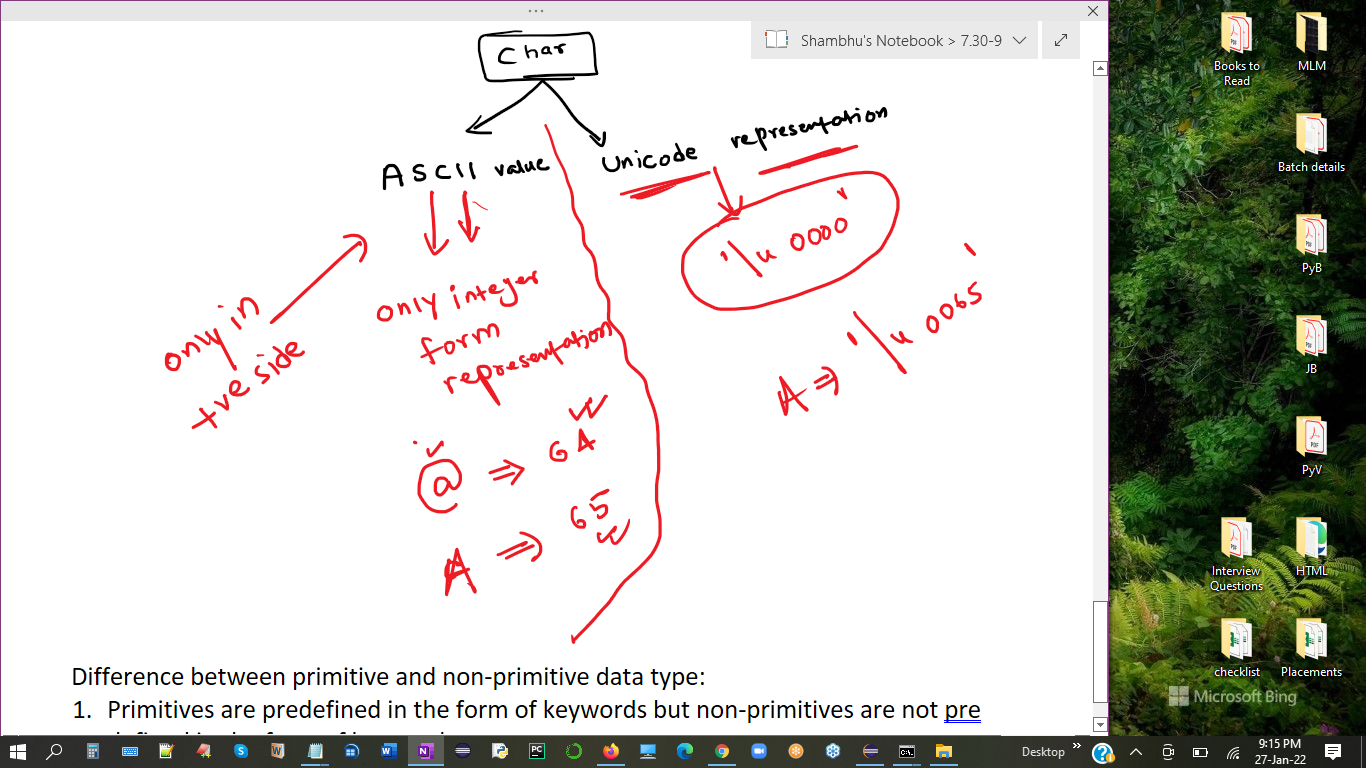 Shambhu's Notebook > 7.30-9
Char
ASCII value
Unicode representation
'/u 0000'
only in
+ve side
only integer
form
representation
A ⇒ '/u 0065'
@ ⇒ 64
A ⇒ 65
Difference between primitive and non-primitive data type:
1. Primitives are predefined in the form of keywords but non-primitives are not pre
Books to
Read
MLM
Batch details
PyB
JB
PyV
Interview
Questions
HTML
checklist
Placements
Microsoft Bing
Desktop
9:15 PM
27-Jan-22